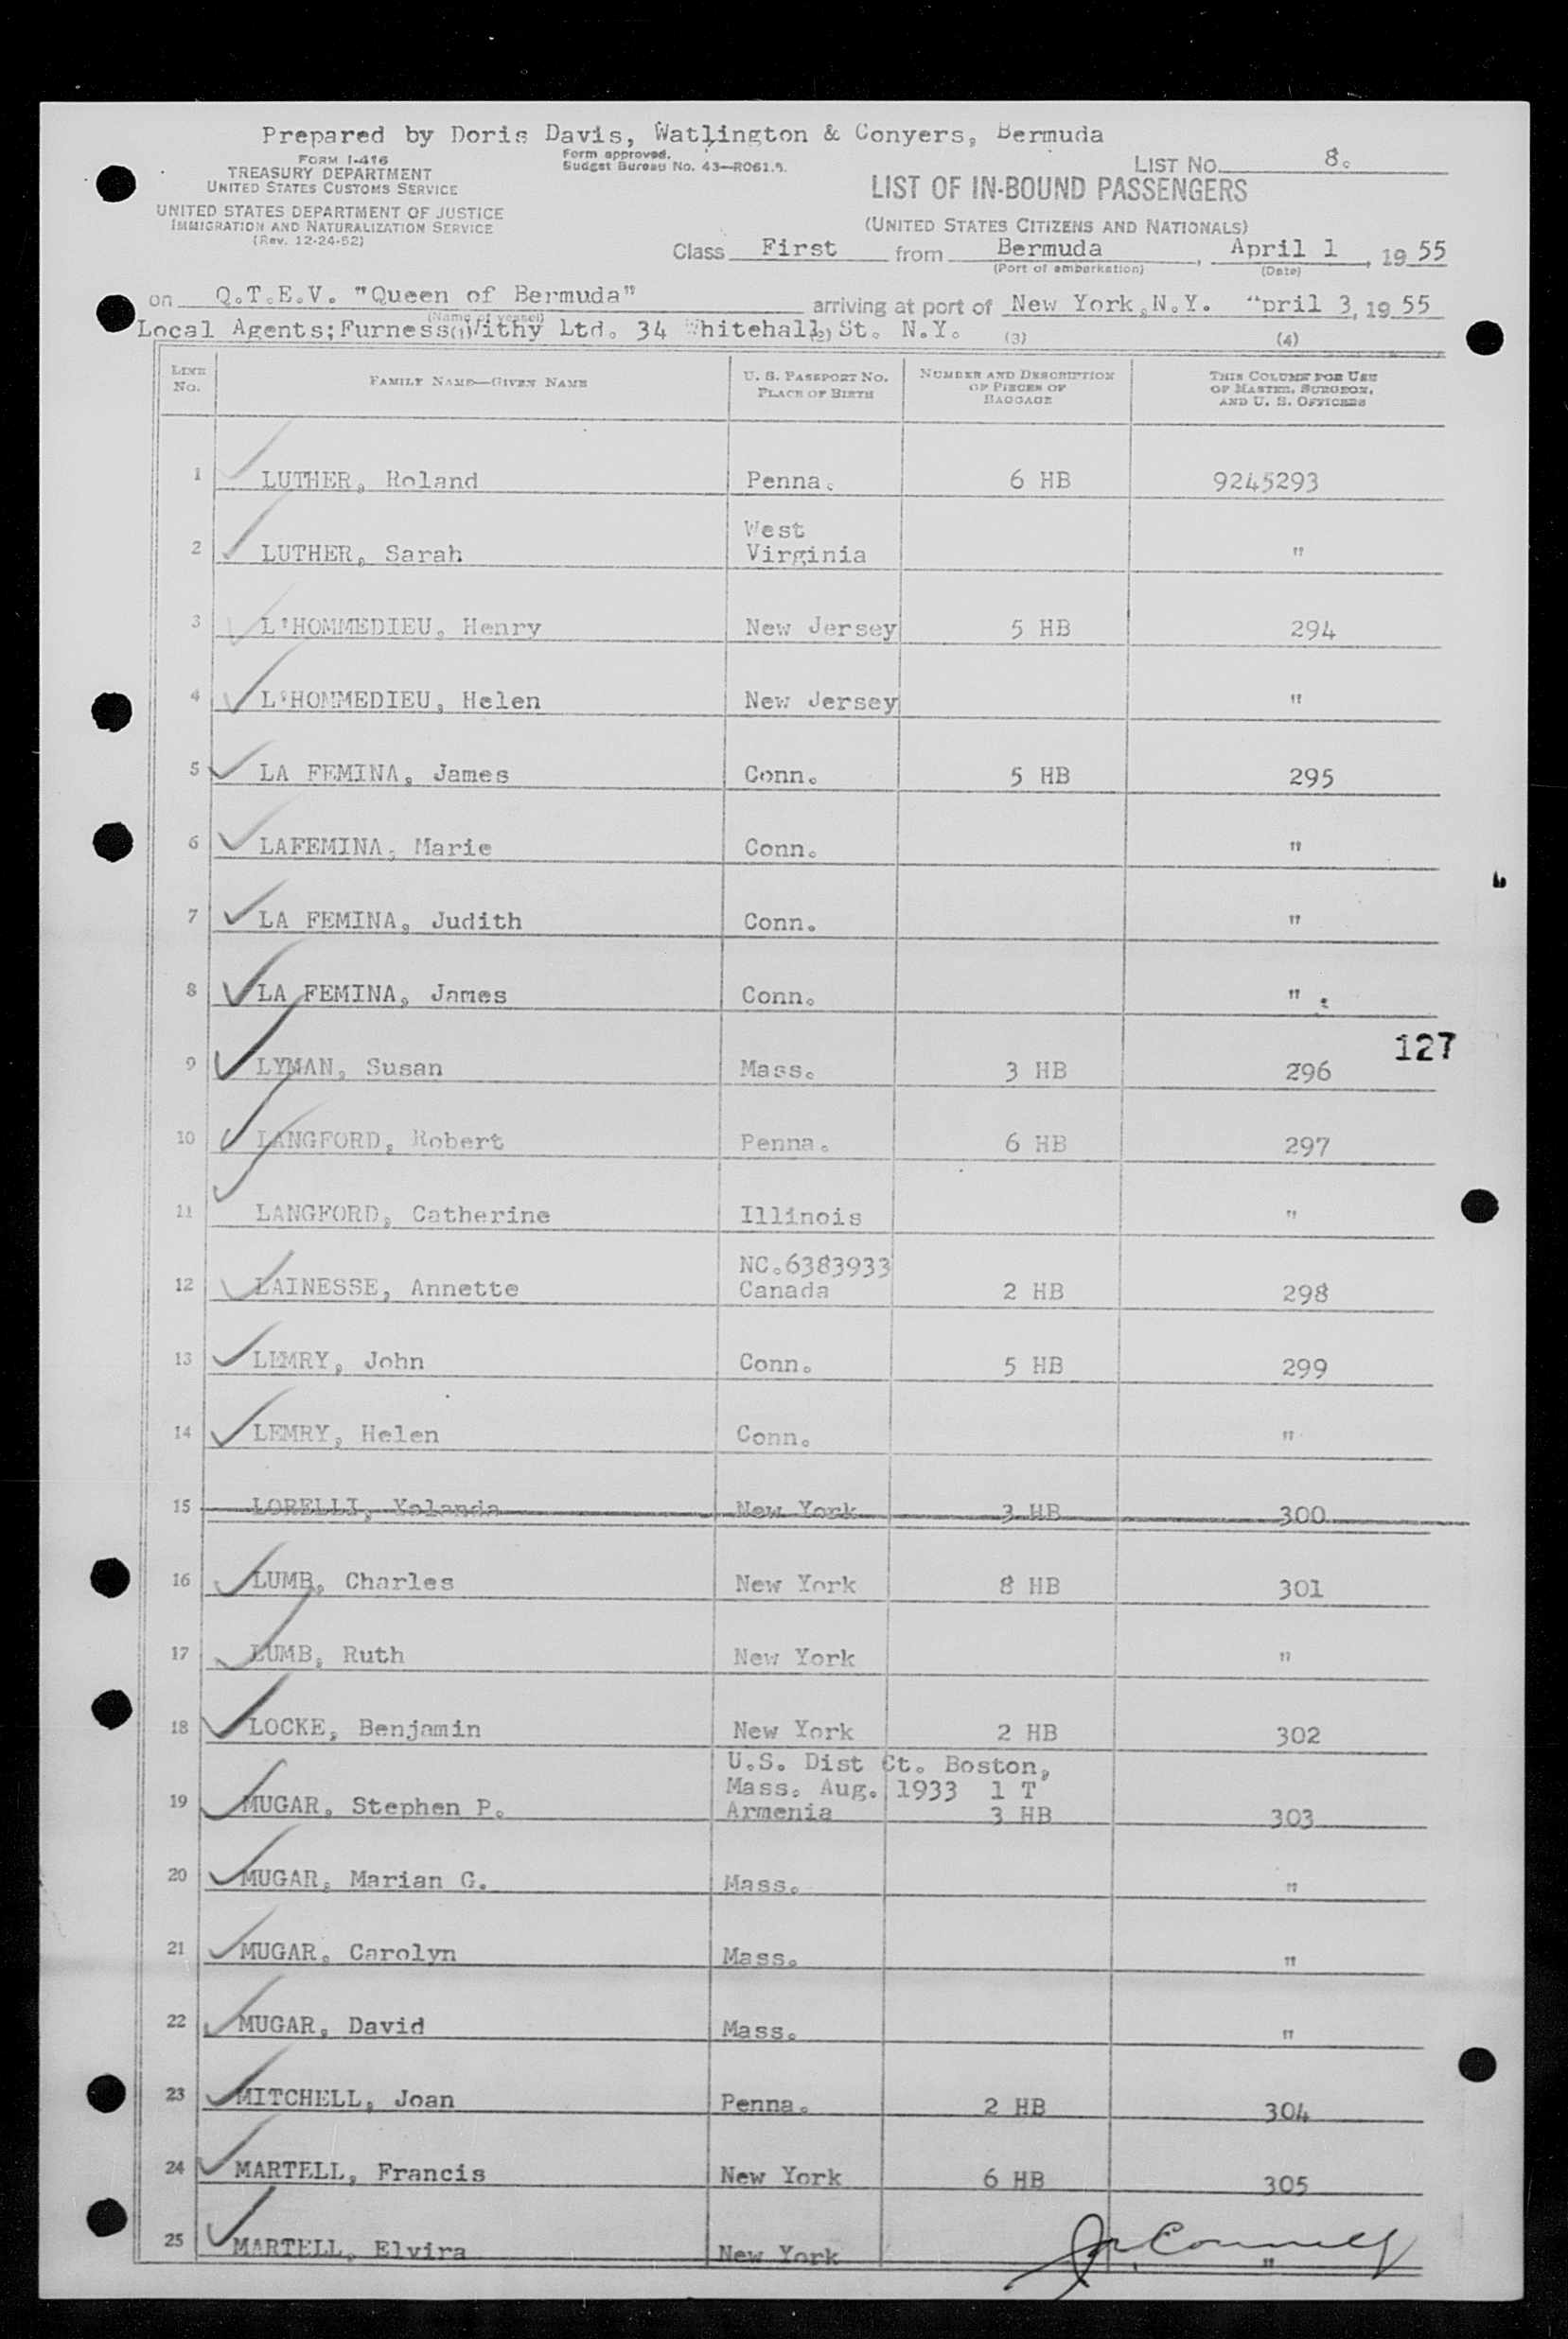 Prepared by Doris Davis, Watlington & Conyers, Bermuda
FORM I-416
TREASURY DEPARTMENT
UNITED STATES CUSTOMS SERVICE
UNITED STATES DEPARTMENT OF JUSTICE
IMMIGRATION AND NATURALIZATION SERVICE
(Rev. 12-24-52)
Form approved.
Budget Bureau No. 43—R061.5.
LIST No. 8.
LIST OF IN-BOUND PASSENGERS
(UNITED STATES CITIZENS AND NATIONALS)
Class First from Bermuda, April 1, 1955
(Port of embarkation) (Date)
on Q.T.E.V. "Queen of Bermuda" arriving at port of New York,N.Y. April 3, 1955
(Name of vessel)
Local Agents;Furness Withy Ltd. 34 Whitehall St. N.Y.
(1) (2) (3) (4)
LINE No. FAMILY NAME—GIVEN NAME U. S. PASSPORT NO. PLACE OF BIRTH NUMBER AND DESCRIPTION OF PIECES OF BAGGAGE THIS COLUMN FOR USE OF MASTER, SURGEON, AND U. S. OFFICERS
1 LUTHER, Roland Penna. 6 HB 9245293
2 LUTHER, Sarah West Virginia "
3 L'HOMMEDIEU, Henry New Jersey 5 HB 294
4 L'HOMMEDIEU, Helen New Jersey "
5 LA FEMINA, James Conn. 5 HB 295
6 LAFEMINA, Marie Conn. "
7 LA FEMINA, Judith Conn. "
8 LA FEMINA, James Conn. " .
127
9 LYMAN, Susan Mass. 3 HB 296
10 LANGFORD, Robert Penna. 6 HB 297
11 LANGFORD, Catherine Illinois "
12 LAINESSE, Annette NC.6383933 Canada 2 HB 298
13 LEMRY, John Conn. 5 HB 299
14 LEMRY, Helen Conn. "
15 LORELLI, Yolanda New York 3 HB 300
16 LUMB, Charles New York 8 HB 301
17 LUMB, Ruth New York "
18 LOCKE, Benjamin New York 2 HB 302
U.S. Dist Ct. Boston,
Mass. Aug. 1933 1 T
19 MUGAR, Stephen P. Armenia 3 HB 303
20 MUGAR, Marian G. Mass. "
21 MUGAR, Carolyn Mass. "
22 MUGAR, David Mass. "
23 MITCHELL, Joan Penna. 2 HB 304
24 MARTELL, Francis New York 6 HB 305
25 MARTELL, Elvira New York "